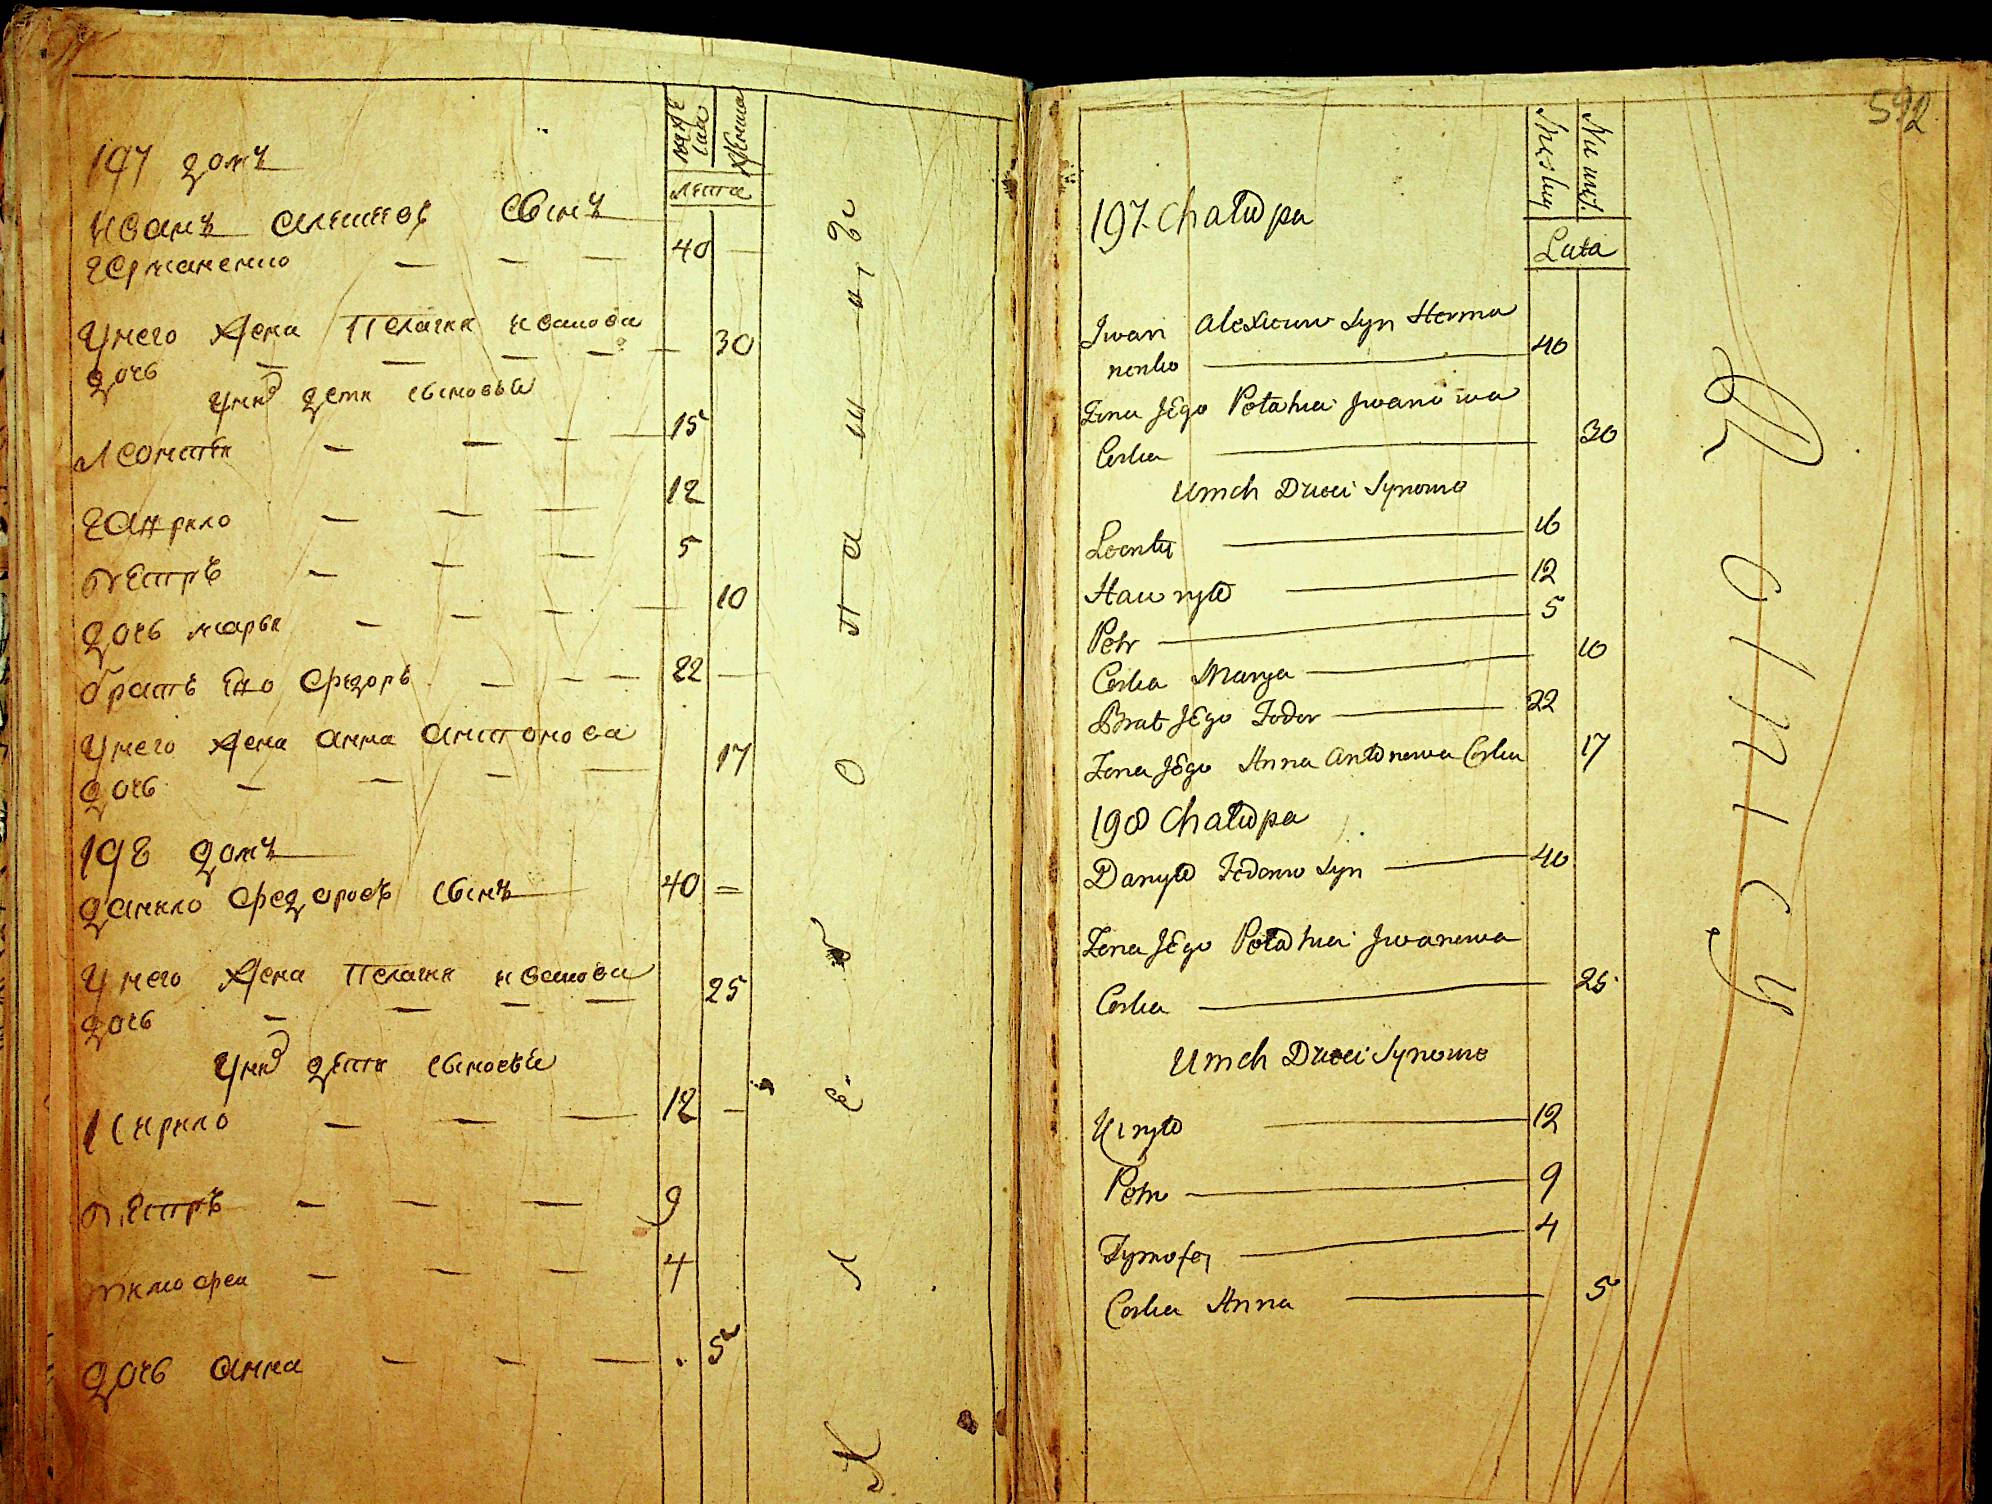 197 домъ
Мужеска
Женска
Лѣта
Иванъ Алексѣевъ сынъ
Германенко — — — 40 —
У него жена Пелагия Иванова
дочь — — — — — 30
У нихъ дети сыновья
Леонтей — — — — 15
Гаврило — — — 12
Петръ — — — 5
дочь Марья — — — — 10
братъ Его Федоръ — — — 22 —
У него жена Анна Антонова
дочь — — — — 17
198 домъ
Данило Федоровъ сынъ 40 =
У него жена Пелагия Иванова
дочь — — — — 25
У нихъ дети сыновья
Кирило — — — 12 —
Петръ — — — 9
Тимофеи — — — 4
дочь Анна — — — 5
592
197 Chałupa
Męskiey
Lata
Jwan Alexieiew Syn Herma
nenko — 40
Żona Jego Pełahia Jwanowa
Corka — 30
U nich Dzieci Synowie
Leonty — 16
Hawryło — 12
Petr — 5
Corka Marya — 10
Brat Jego Fedor — 22
Żona Jego Anna Antonowa Corka 17
198 Chałupa
Danyło Fedorow Syn — 40
Żona Jego Pełahia Jwanowa
Corka — 25
U nich Dzieci Synowie
Kiryło — 12
Petr — 9
Tymofey — 4
Corka Anna — 5